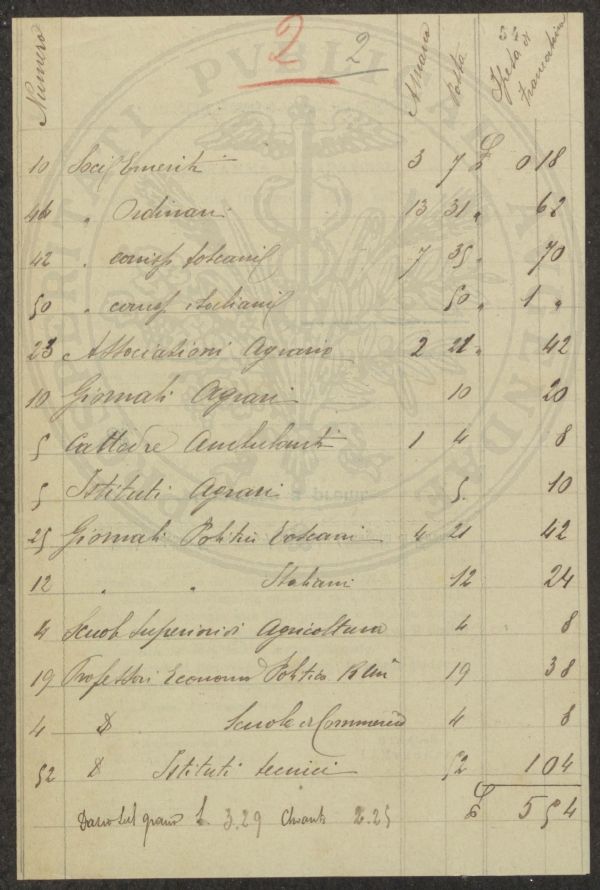 2 2 34
Numero A mano Posta Spesa di Francatura
10 Soci Emeriti 3 7 £ 0 18
44 " Ordinari 13 31 " 62
42 " corrisp toscani 7 35 " 70
50 " corrisp italiani 50 " 1 "
23 Associazioni Agrarie 2 21 " 42
10 Giornali Agrari 10 20
5 Cattedre Ambulanti 1 4 8
5 Istituti Agrari 5 10
25 Giornali Politici Toscani 4 21 42
12 " " Italiani 12 24
4 Scuole Superiori di Agricoltura 4 8
19 Professori Economia Politica 19 38
4 D Scuole di Commercio 4 8
52 D Istituti tecnici 52 104
£ 5 54
Dazio sul grano L. 3.29 Chianti 2.25
PROSPERITATI PVBLICAE AVGENDAE